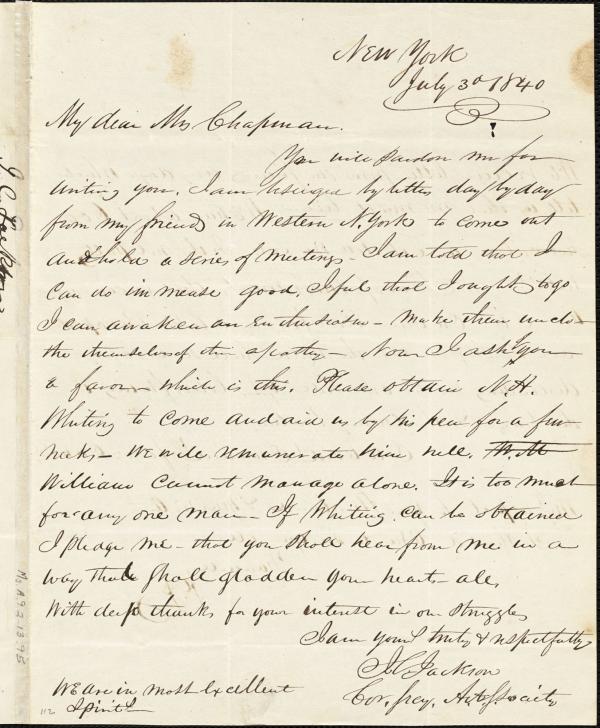 New York
July 3d 1840
My dear Mrs Chapman.
You will pardon me for
writing you. I am besieged by letters day by day
from my friends in Western N. York to come out
and hold a series of meetings - I am told that I
can do immense good. I feel that I ought to go
I can awaken an Enthusiasm - make them unclo-
the themselves of their apathy - Now I ask you
a favor - which is this. Please obtain N. H.
Whiting to come and aid us by his pen for a few
weeks - We will remunerate him well. W. M
William cannot manage alone. It is too much
for any one man - If Whiting can be obtained
I pledge me - that you shall hear from me in a
way that shall gladden your hearts - all
With deep thanks for your interest in our struggles
I am yours truly & respectfully
J C Jackson
Cor. Secy. Anti S. Society
We are in most excellent
Spirits
112
J. C. Jackson
Ms.A.9.2.13.95